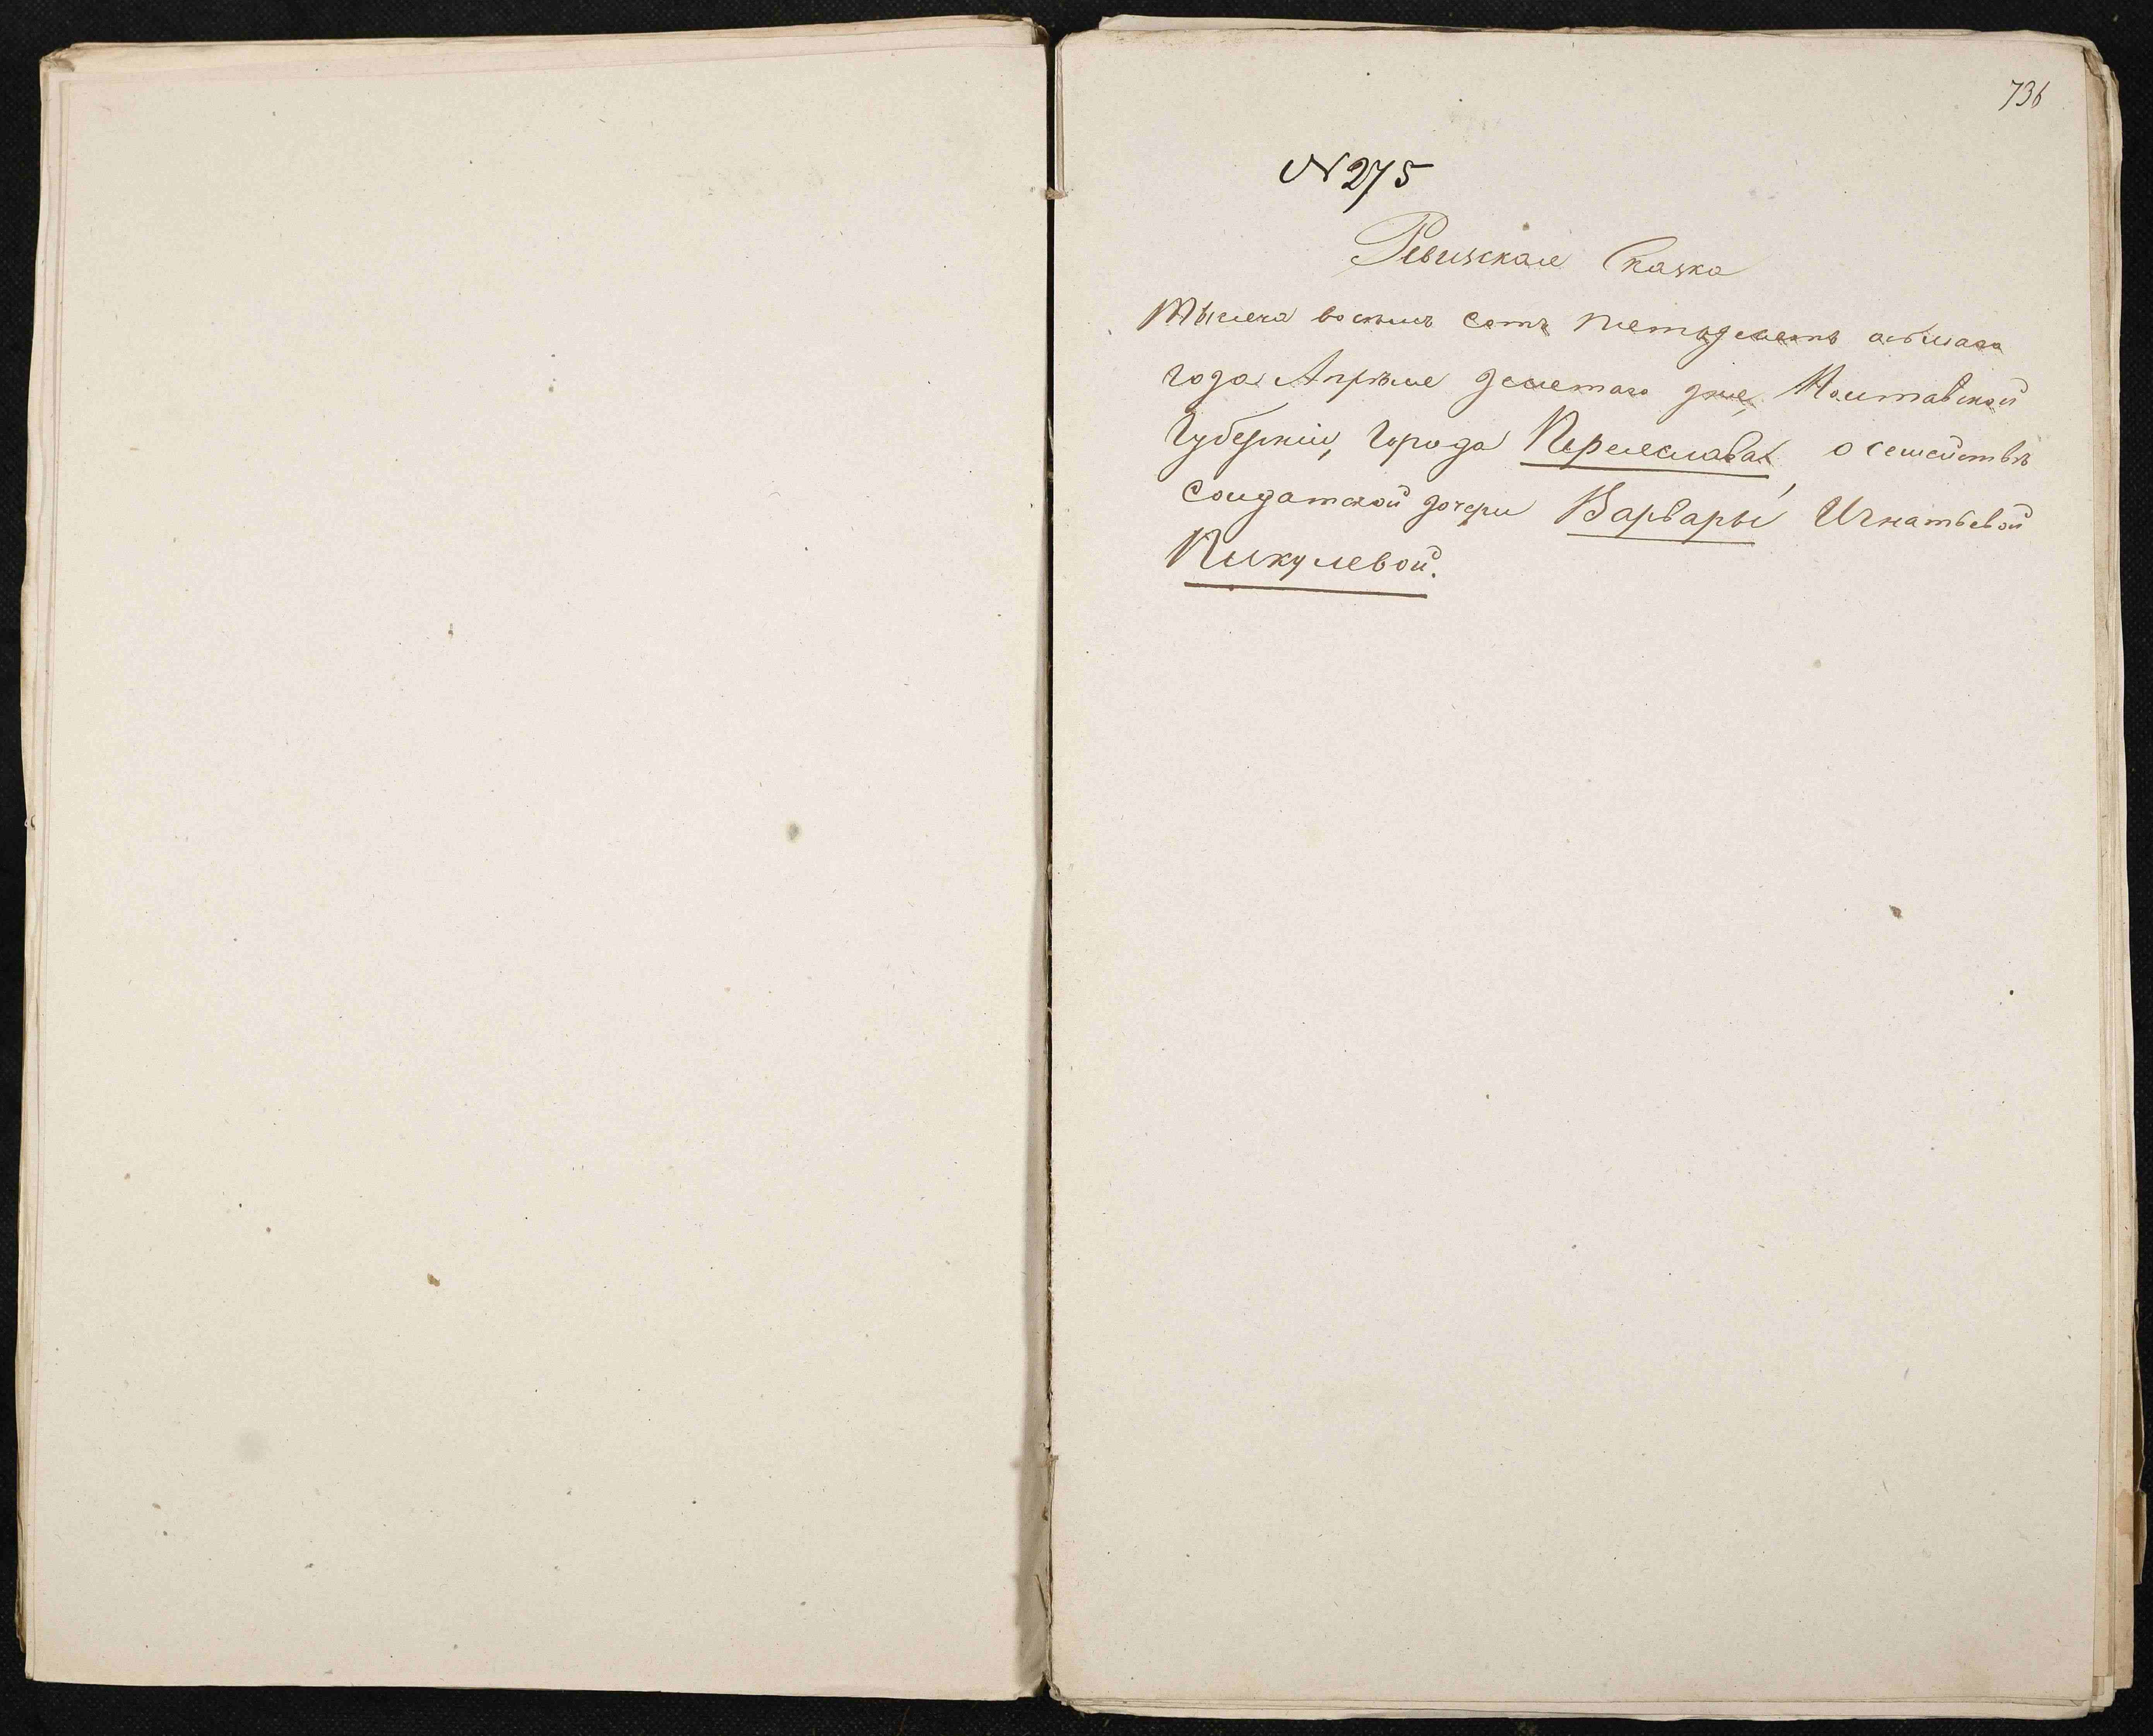 736
N 275
Ревизская Сказка
Тысяча восемь сотъ пятьдесятъ осьмаго
года Апрѣля десятаго дня, Полтавской
Губерніи, Города Переяслава, о семействѣ
Солдатской дочери Варвары Игнатьевой
Пикулевой.